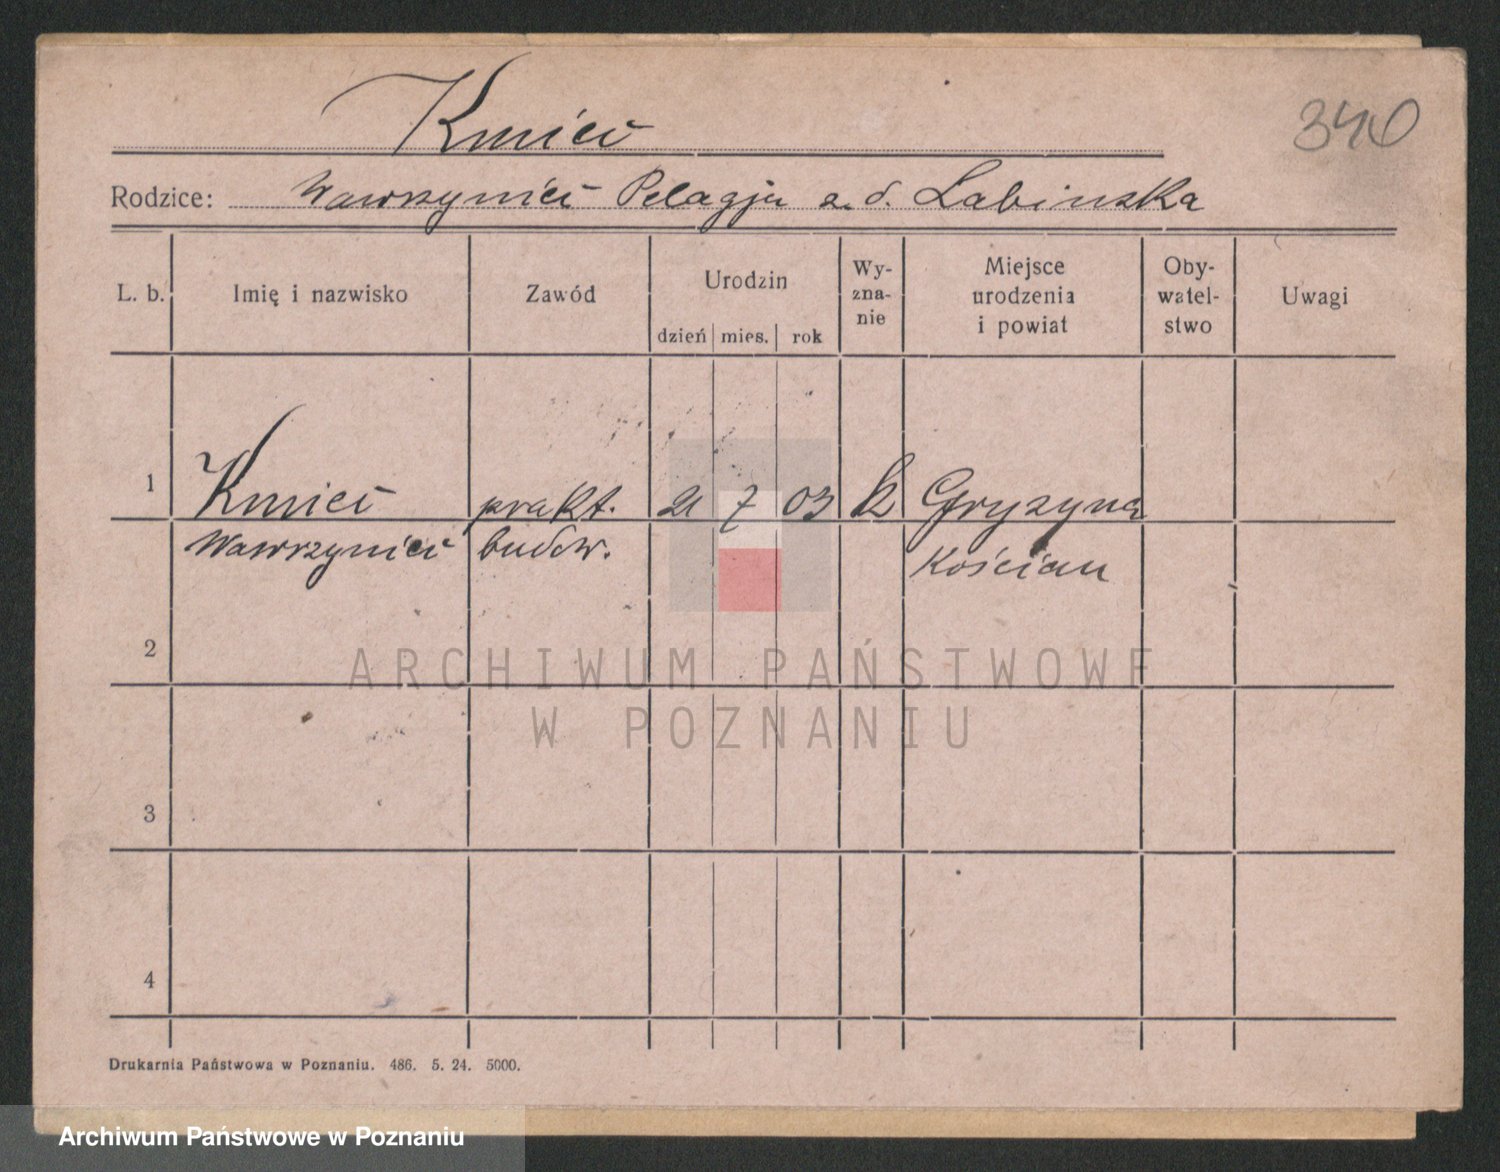 Kmieć
340
Rodzice: Wawrzyniec Pelagja z. d. Labinska
L. b.
Imię i nazwisko
Zawód
Urodzin
dzień mies. rok
Wy-
zna-
nie
Miejsce
urodzenia
i powiat
Oby-
watel-
stwo
Uwagi
1
Kmieć
Wawrzyniec
prakt.
budow.
21 7 03
k
Gryżyna
Kościan
2
3
4
ARCHIWUM PAŃSTWOWE
W POZNANIU
Drukarnia Państwowa w Poznaniu. 486. 5. 24. 5000.
Archiwum Państwowe w Poznaniu